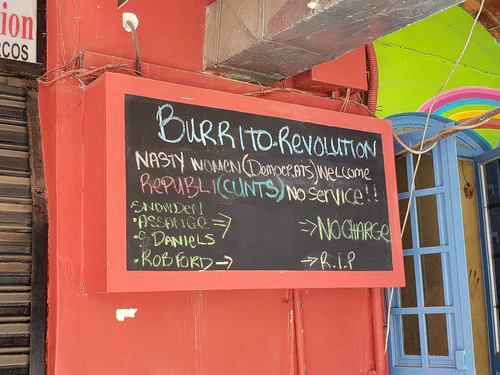 ion
RCOS
BURRITO.REVOLUTION
NASTY WOMEN (DEMOCRATS) WELCOME
REPUBLI(CUNTS) NO SERVICE!!
SNOWDEN
•ASSANGE ⇒ ⇒ NO CHARGE
•S DANIELS
•ROB FORD → → R.I.P